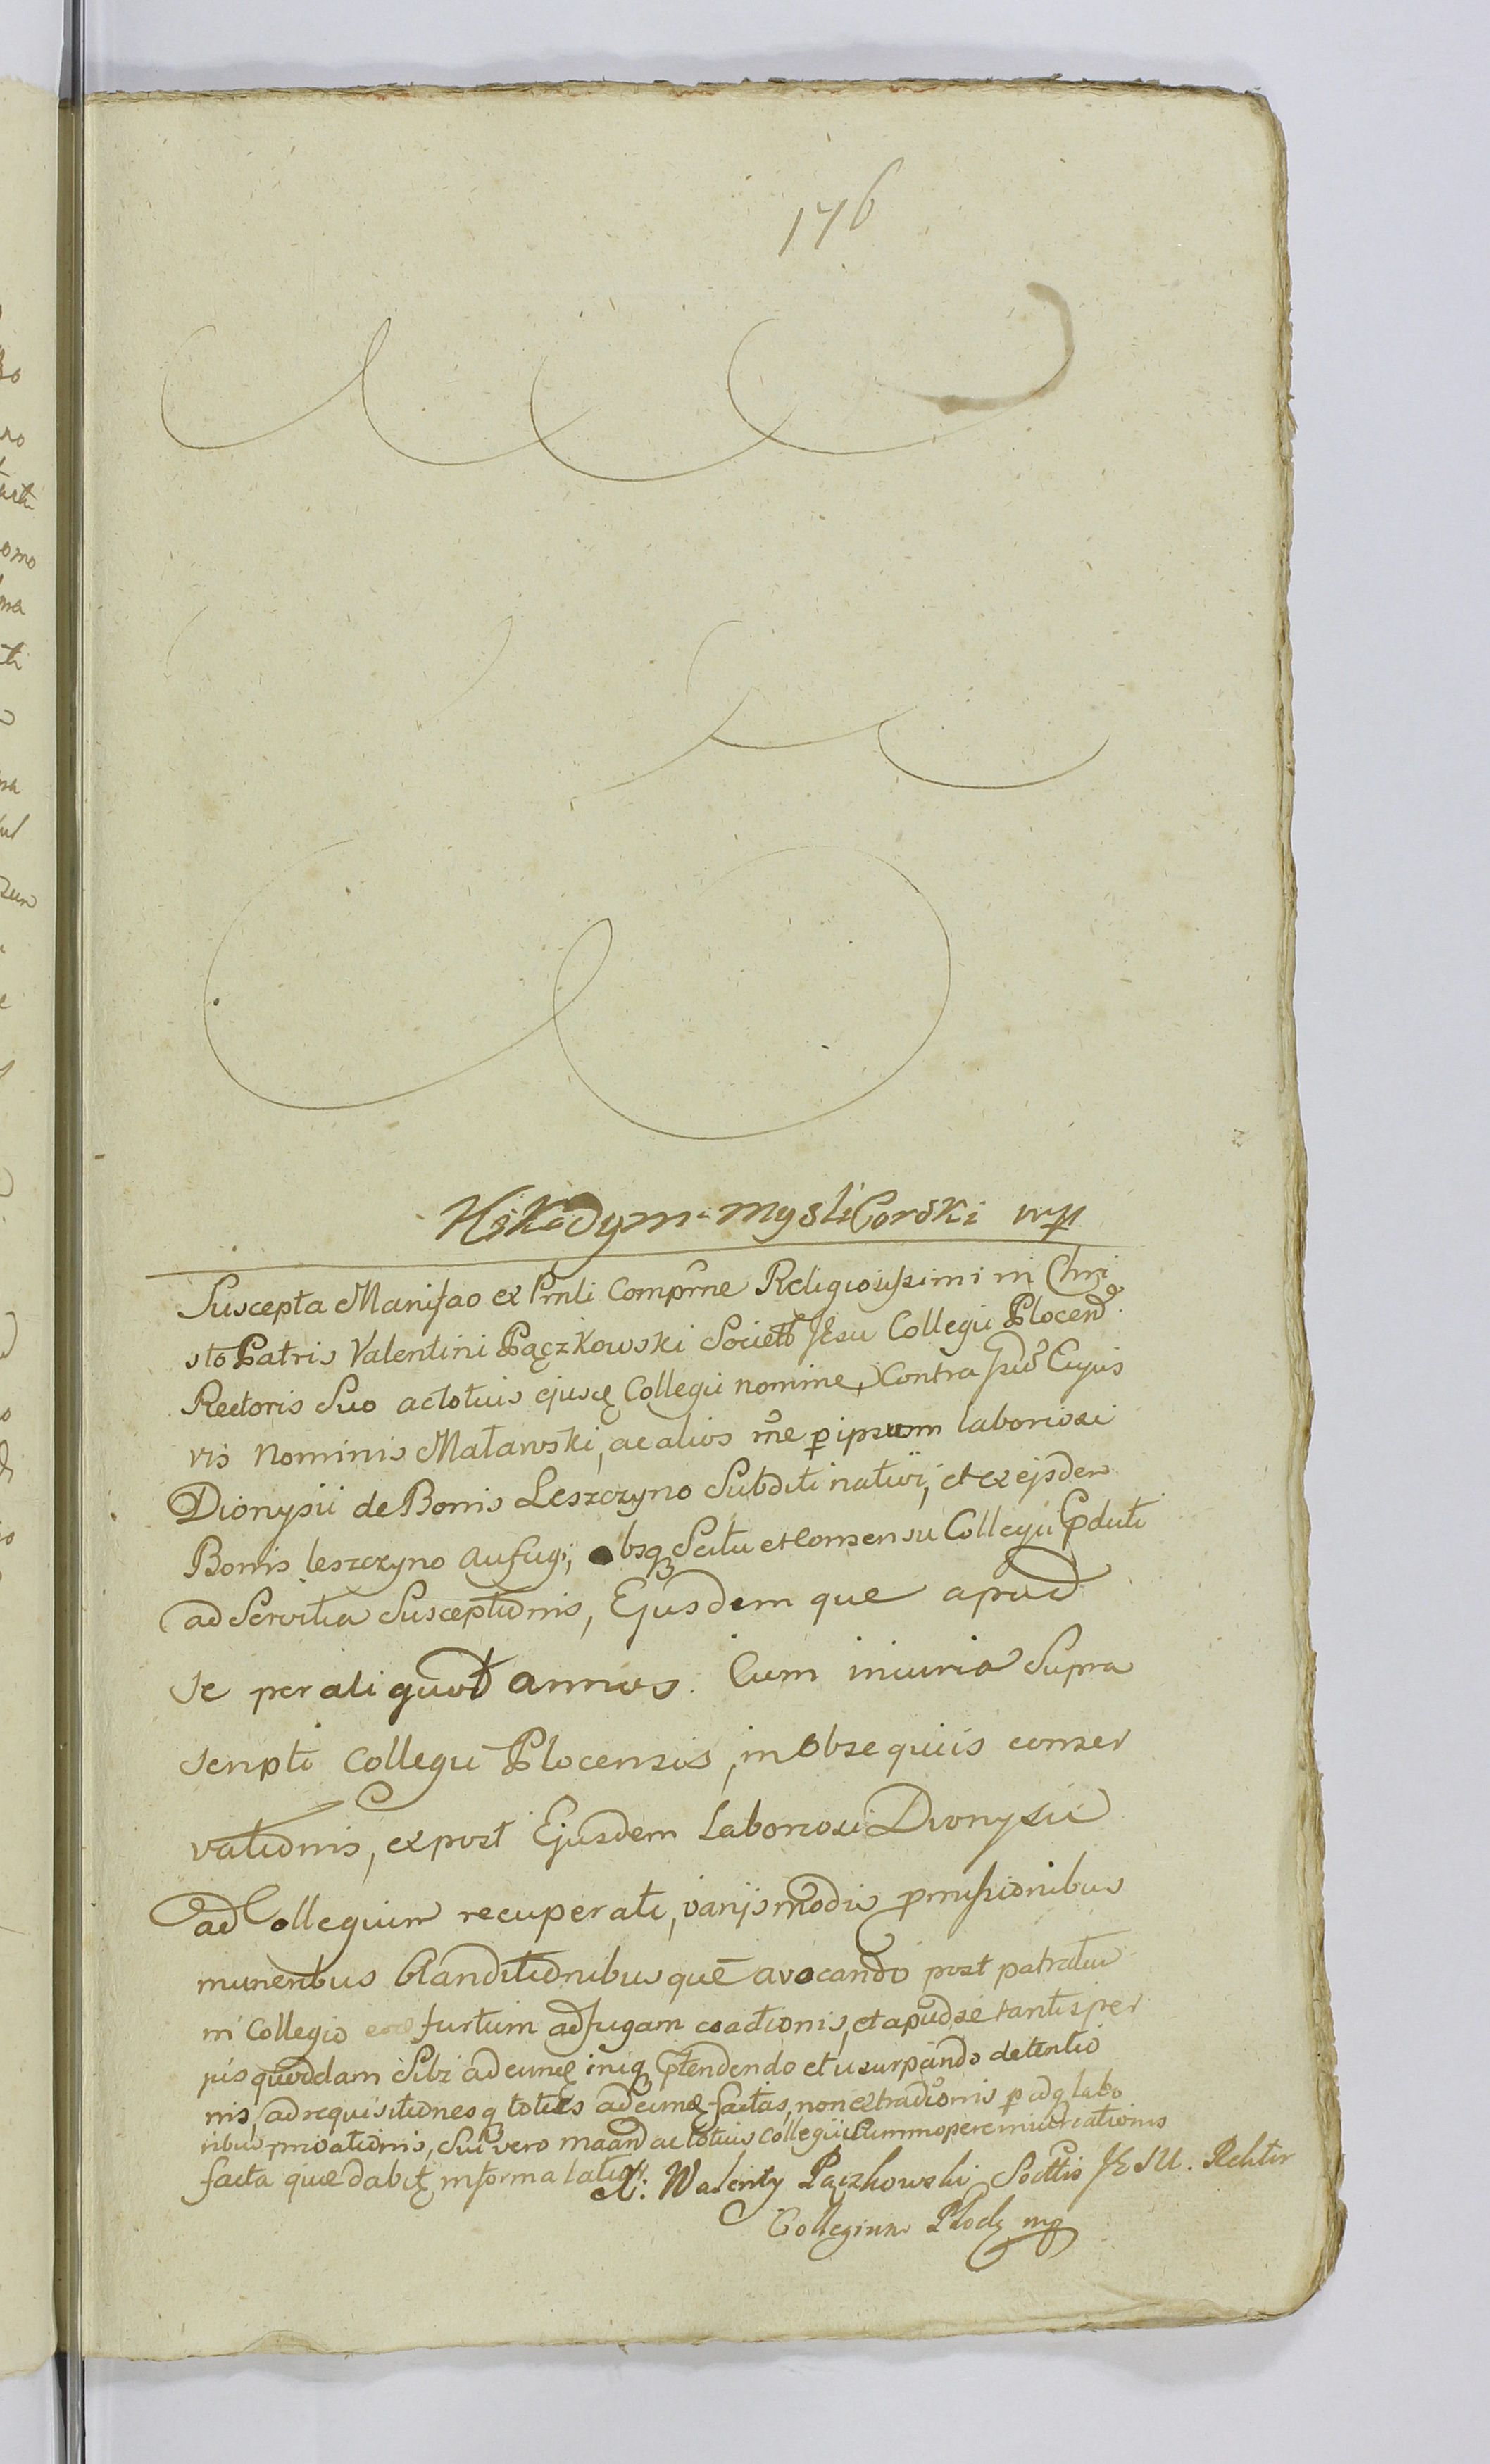 176
Nikodym mysliborski mp
Suscepta Manifao ex Prnli Comprne Religiosissimi in Chri
sto Patris Valentini Pączkowski Societt Jesu Collegii Plocens
Rectoris Suo ac totius ejusq Collegii nomine, Contra Cujus
vis Nominis Małanski, ac alios rne p ipsum laboriosi
Dionysii de Bonis Leszczyno Subditi nativi, et ex ejsdem
Bonis leszczyno aufugi, absq Scitu et Consensu Collegii Pduti
ad Servitia Susceptionis, Ejusdem que apud
se per aliquot annos. Cum iniuria Supra
scripti Collegii Plocensis, in Obsequiis conser
vationis, ex post Ejusdem Laboriosi Dionysii
ad Collegium recuperati, varijs modis pmissionibus
muneribus blanditionibus que avocando post patratum
in Collegio furtum ad fugam coactionis, et apud se tantisper
jus quoddam Sibi ad eumq iniq ptendendo et usurpando detentio
nis, ad requisitiones q toties ad eumq factas, non extradionis p idq labo
ribus privationis, Sui vero maan ac totius Collegii Summopere
facta quae dabitq informa latiori X. Walenty Pączkowski Soctis JESU. Rektor
Collegium Płock mp